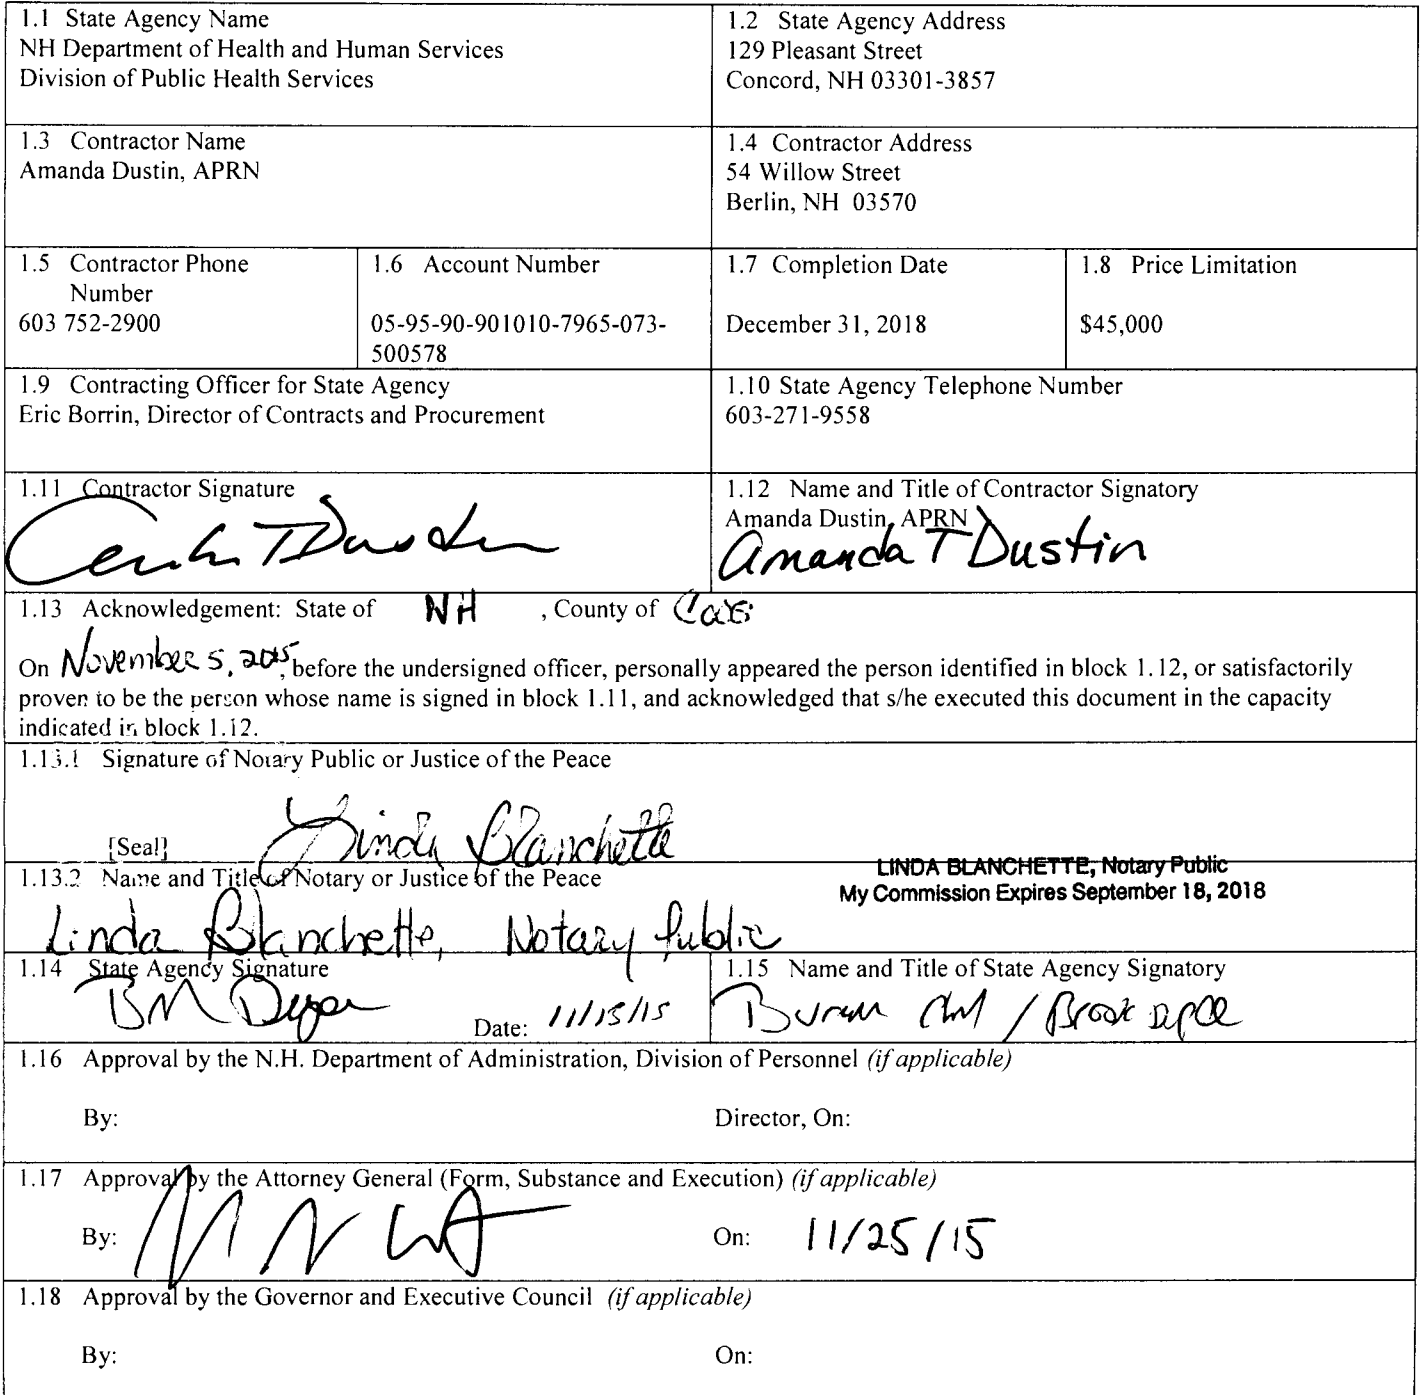 1.1 State Agency Name
NH Department of Health and Human Services
Division of Public Health Services
1.2 State Agency Address
129 Pleasant Street
Concord, NH 03301-3857
1.3 Contractor Name
Amanda Dustin, APRN
1.4 Contractor Address
54 Willow Street
Berlin, NH 03570
1.5 Contractor Phone
Number
603 752-2900
1.6 Account Number
05-95-90-901010-7965-073-
500578
1.7 Completion Date
December 31, 2018
1.8 Price Limitation
$45,000
1.9 Contracting Officer for State Agency
Eric Borrin, Director of Contracts and Procurement
1.10 State Agency Telephone Number
603-271-9558
1.11 Contractor Signature
T Dustin
1.12 Name and Title of Contractor Signatory
Amanda Dustin, APRN
Amanda T Dustin
1.13 Acknowledgement: State of NH , County of
On November 5, 2015, before the undersigned officer, personally appeared the person identified in block 1.12, or satisfactorily
proven to be the person whose name is signed in block 1.11, and acknowledged that s/he executed this document in the capacity
indicated in block 1.12.
1.13.1 Signature of Notary Public or Justice of the Peace
[Seal] Linda Blanchette
LINDA BLANCHETTE, Notary Public
My Commission Expires September 18, 2018
1.13.2 Name and Title of Notary or Justice of the Peace
Linda Blanchette, Notary Public
1.14 State Agency Signature
BM
Date: 11/15/15
1.15 Name and Title of State Agency Signatory
Brook
1.16 Approval by the N.H. Department of Administration, Division of Personnel (if applicable)
By:
Director, On:
1.17 Approval by the Attorney General (Form, Substance and Execution) (if applicable)
By:
On: 11/25/15
1.18 Approval by the Governor and Executive Council (if applicable)
By:
On: